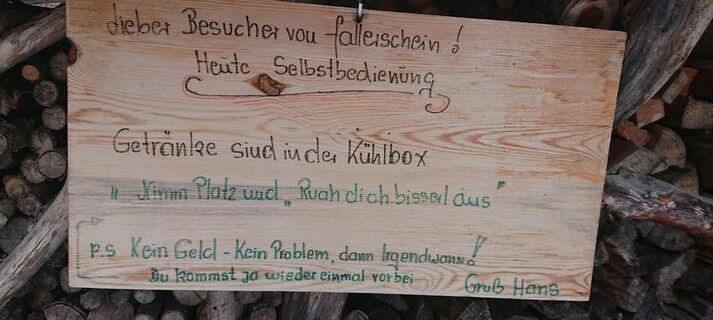 dieber Besucher von fallerschein!
Heute Selbstbedienung
Getränke sind in der Kühlbox
" Nimm Platz und „ Ruah dich bisserl aus "
P.S Kein Geld - Kein Problem, dann Irgendwann!
Du kommst ja wieder einmal vorbei
Gruß Hans